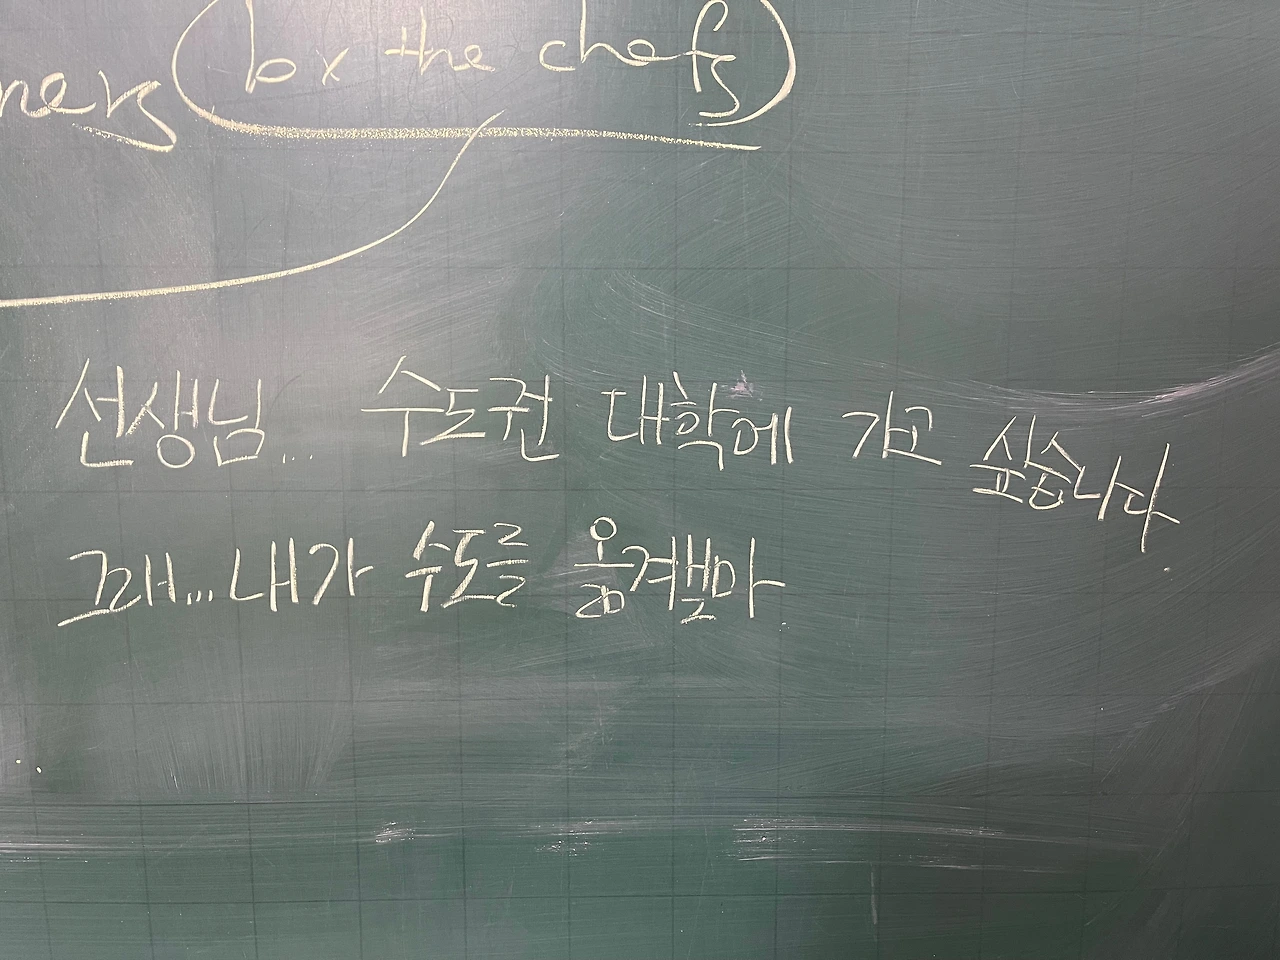 ners (by the chefs)
선생님... 수도권 대학에 가고 싶습니다
그래... 내가 수도를 옮겨볼마.